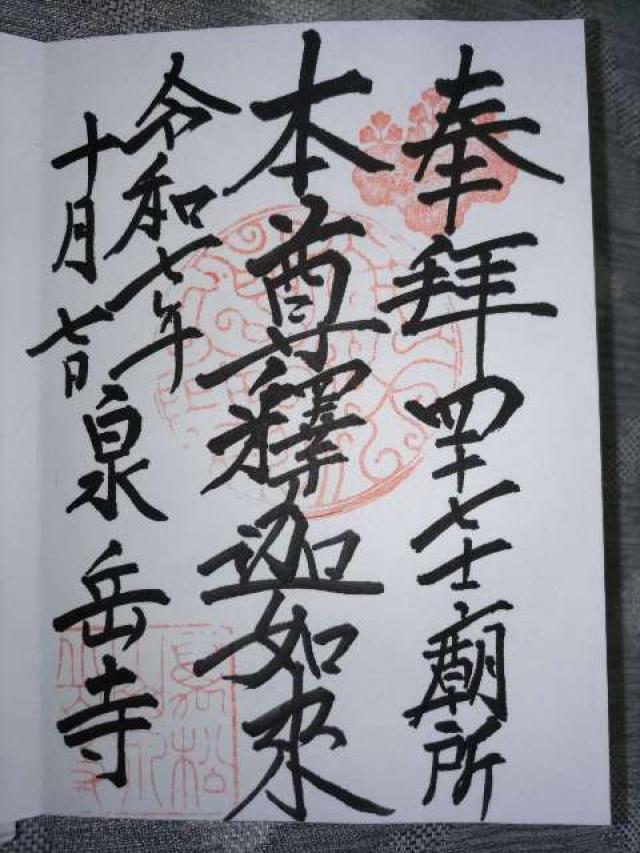 奉拝 四十七士廟所
本尊釋迦如来
令和七年
十月七日
泉岳寺